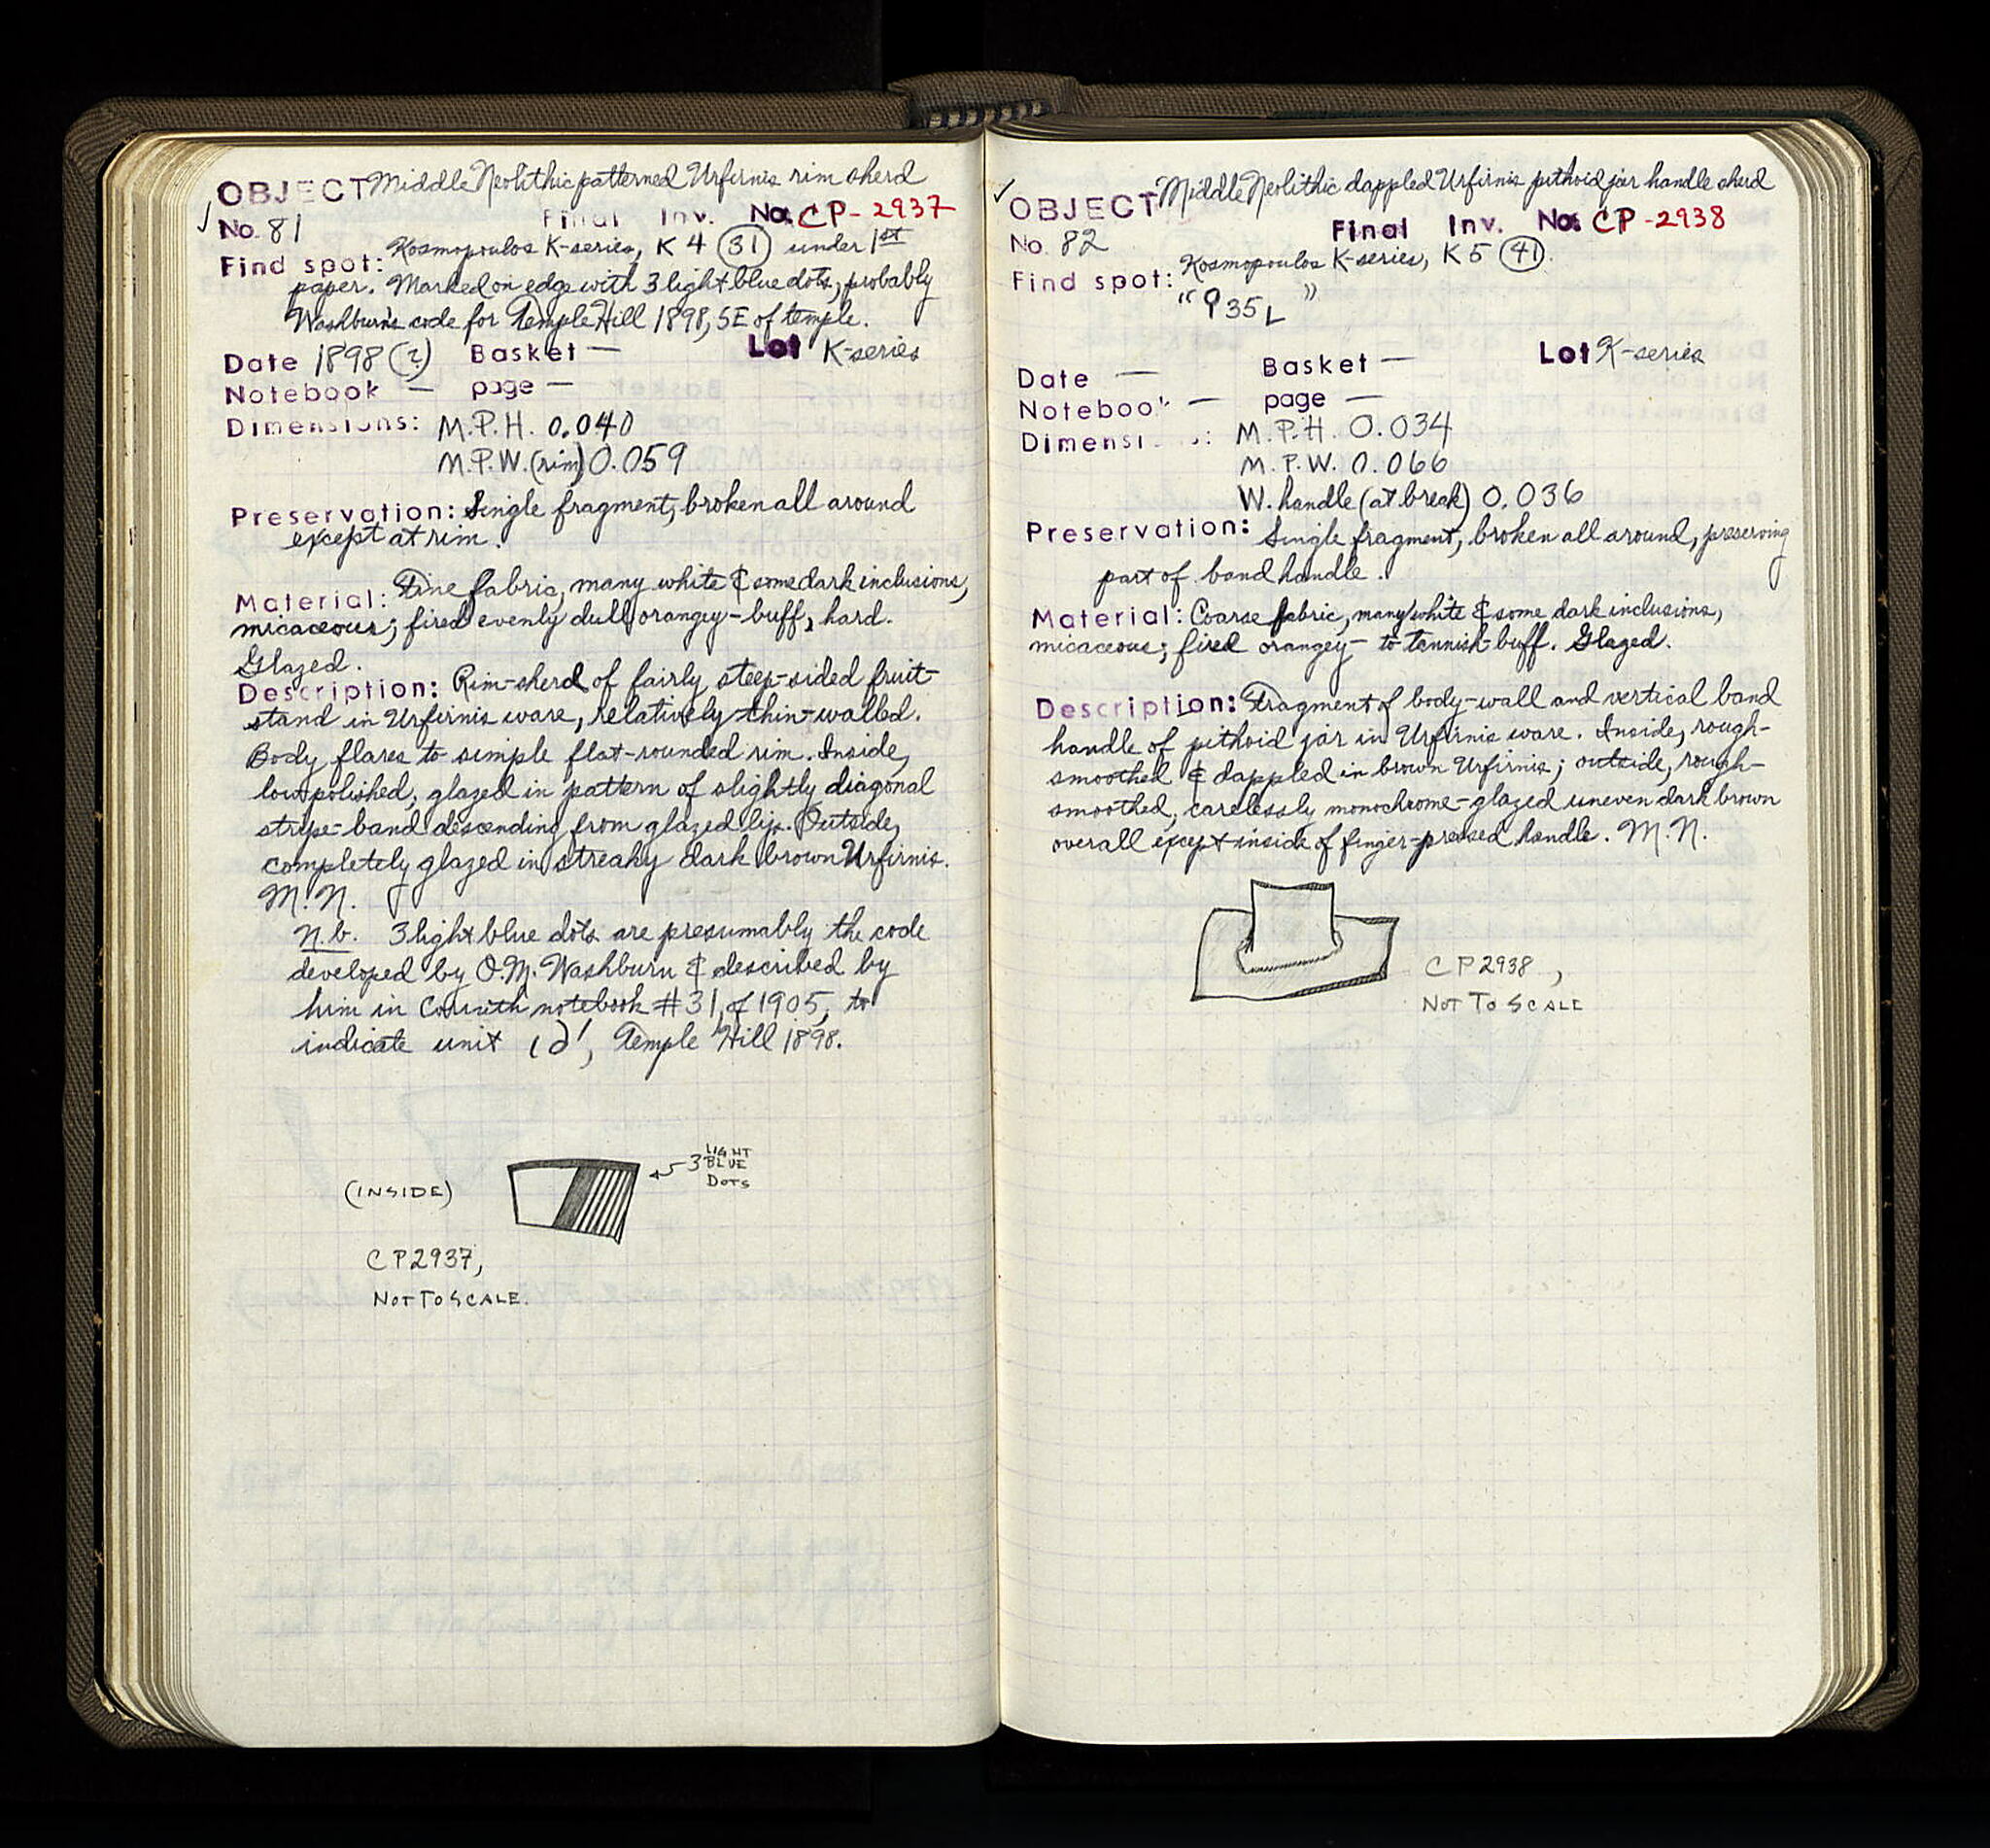 OBJECT Middle Neolithic patterned Urfirnis rim sherd
√ No. 81 Final Inv. No. CP-2937
Find spot: Kosmopoulos K-series, K 4 (31) under 1st
paper. Marked on edge with 3 light blue dots, probably
Washburn's code for Temple Hill 1898, SE of temple.
Date 1898 (?) Basket — Lot K-series
Notebook — page —
Dimensions: M.P.H. 0.040
M.P.W. (rim) 0.059
Preservation: Single fragment, broken all around
except at rim.
Material: Fine fabric, many white & some dark inclusions,
micaceous; fired evenly dull orangey-buff, hard.
Glazed.
Description: Rim-sherd of fairly steep-sided fruit-
stand in Urfirnis ware, relatively thin-walled.
Body flares to simple flat-rounded rim. Inside,
low polished, glazed in pattern of slightly diagonal
stripe-band descending from glazed lip. Outside,
completely glazed in streaky dark brown Urfirnis.
M.N.
N.b. 3 light blue dots are presumably the code
developed by O.M. Washburn & described by
him in Corinth notebook #31, of 1905, to
indicate unit ιδ', Temple Hill 1898.
(INSIDE)
3 LIGHT
BLUE
DOTS
CP2937,
NOT TO SCALE.
✓ OBJECT Middle Neolithic dappled Urfirnis pithoid jar handle sherd
No. 82 Final Inv. No. CP-2938
Find spot: Kosmopoulos K-series, K 5 (41).
"Ϙ 35 L"
Date — Basket — Lot K-series
Notebook — page —
Dimensi : M.P.H. 0.034
M.P.W. 0.066
W. handle (at break) 0.036
Preservation: Single fragment, broken all around, preserving
part of band handle.
Material: Coarse fabric, many white & some dark inclusions,
micaceous; fired orangey- to tannish-buff. Glazed.
Description: Fragment of body-wall and vertical band
handle of pithoid jar in Urfirnis ware. Inside, rough-
smoothed & dappled in brown Urfirnis; outside, rough-
smoothed, carelessly monochrome-glazed uneven dark brown
overall except inside of finger-pressed handle. M.N.
CP2938,
NOT TO SCALE